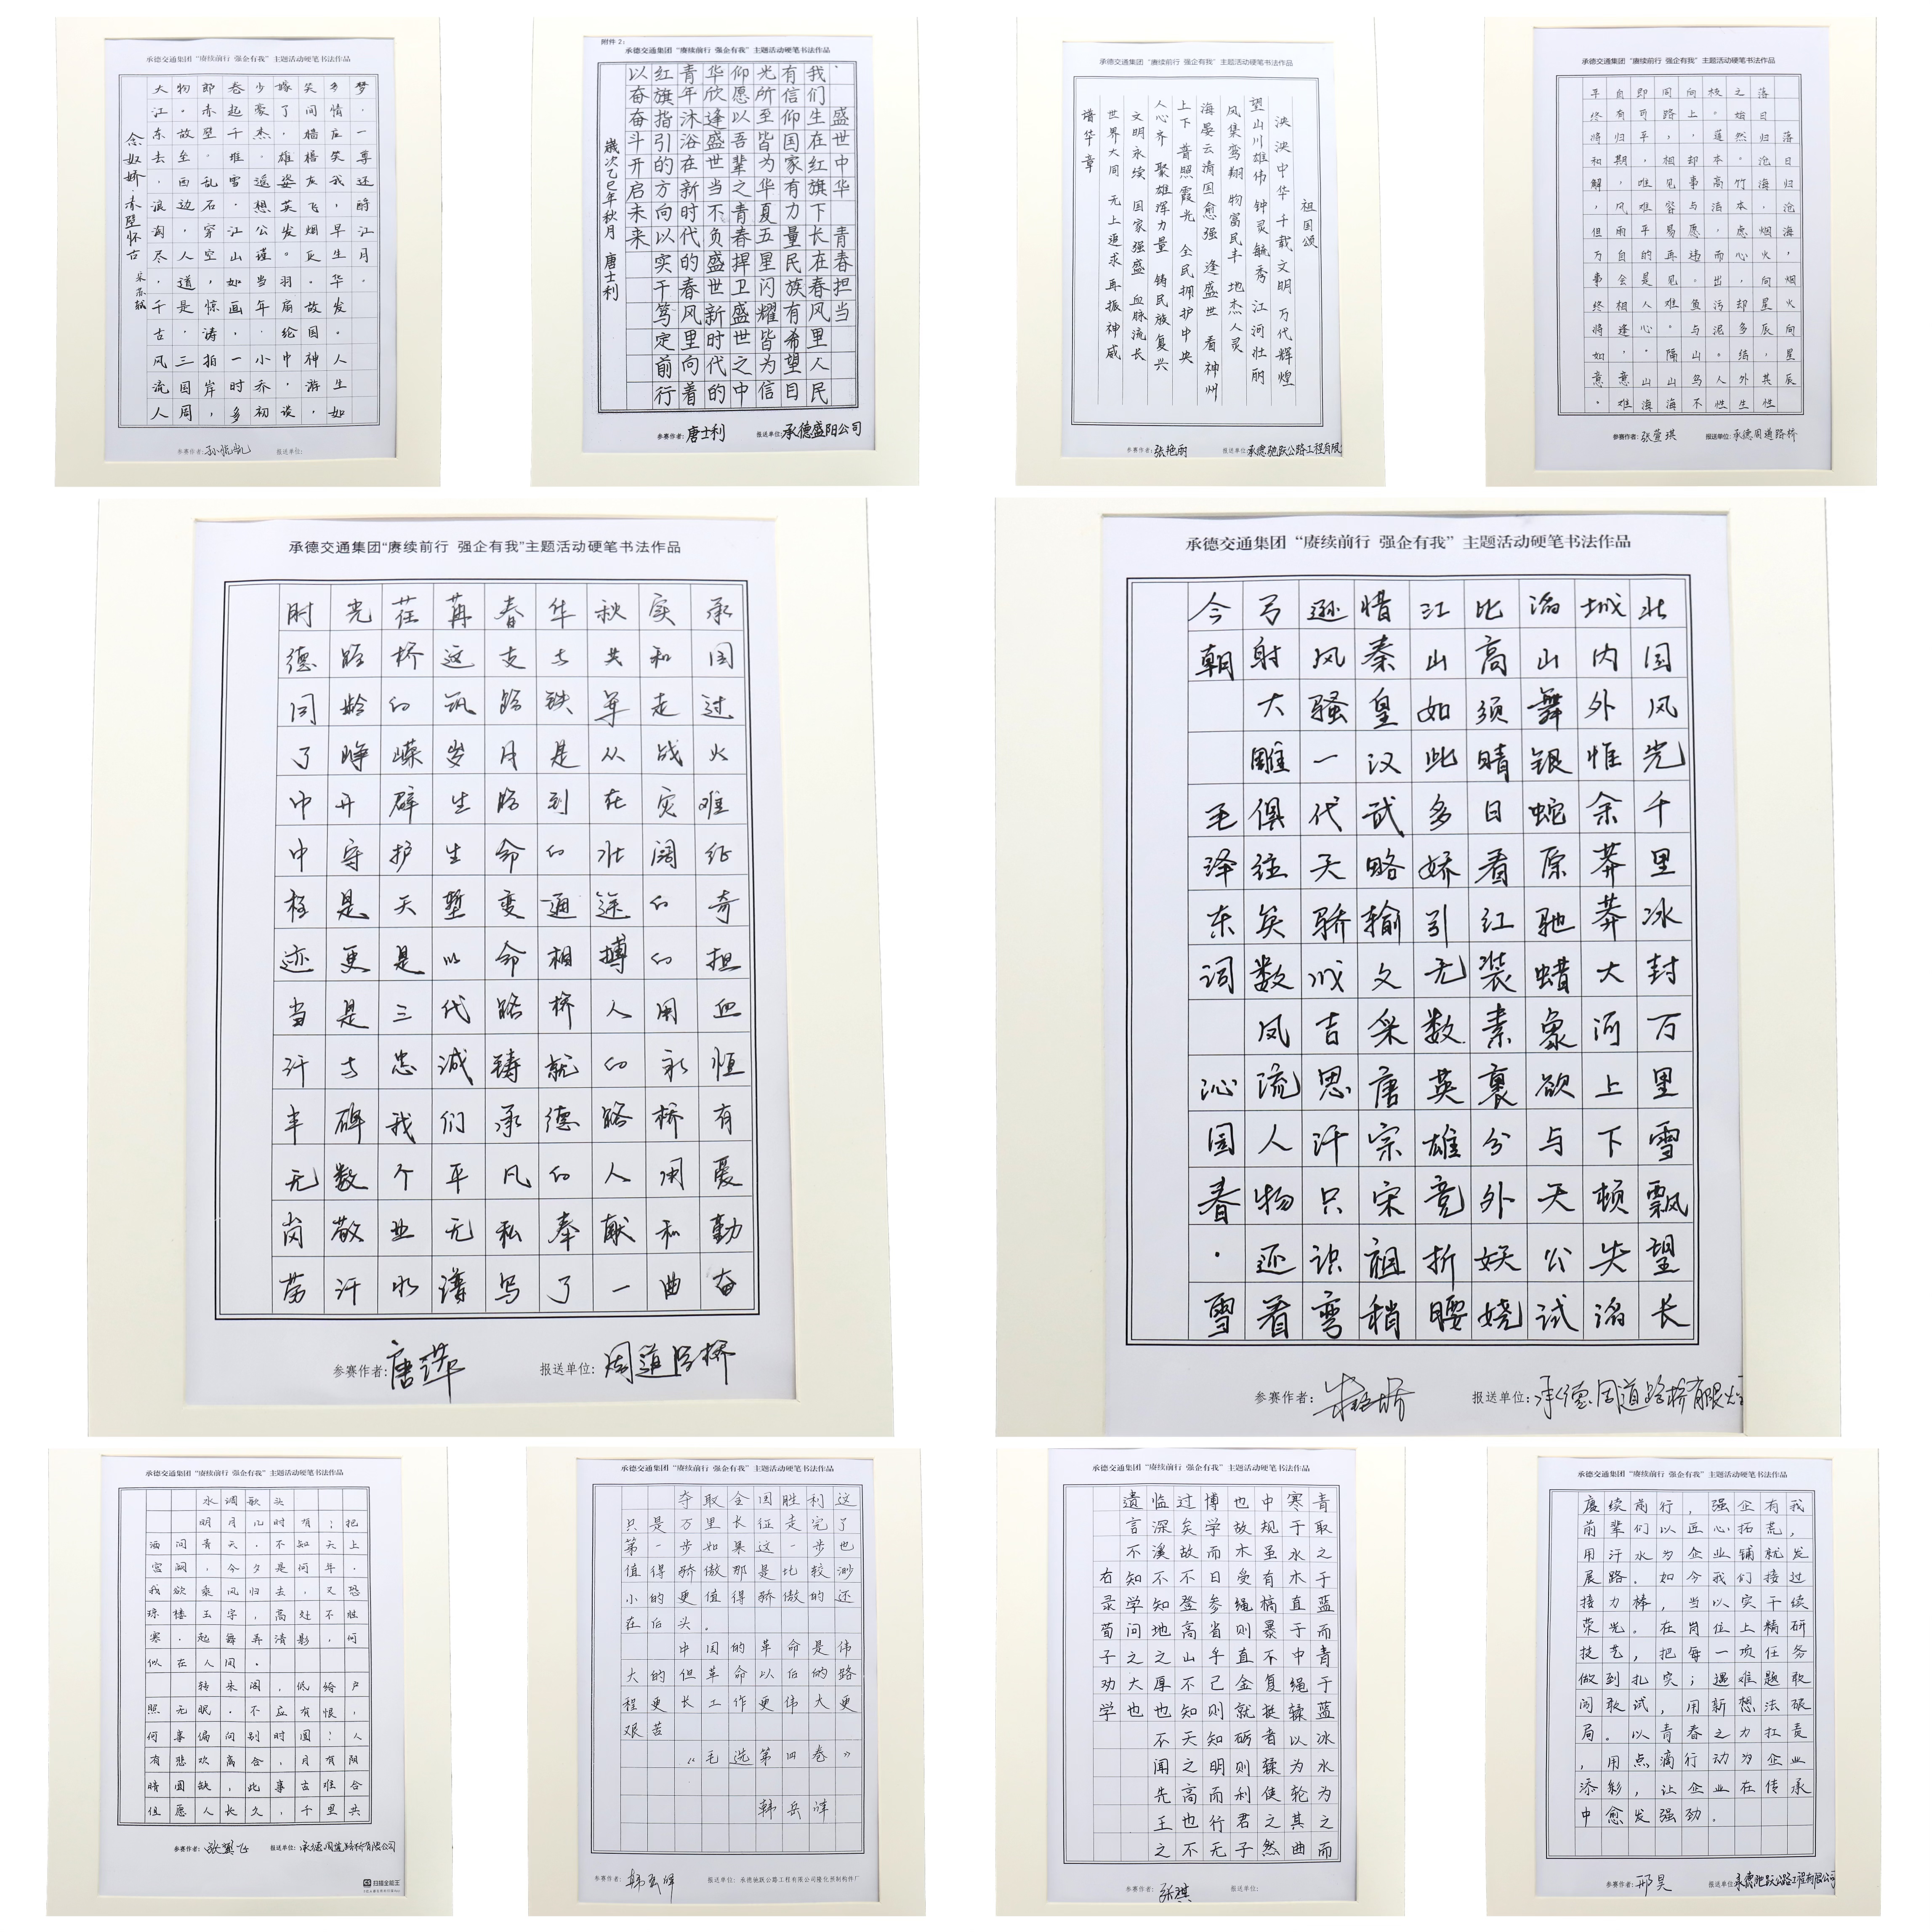 承德交通集团“赓续前行 强企有我”主题活动硬笔书法作品
念奴娇·赤壁怀古 宋 苏轼
大江东去,浪淘尽,千古风流人
物。故垒西边,人道是,三国周
郎赤壁。乱石穿空,惊涛拍岸,
卷起千堆雪。江山如画,一时多
少豪杰。遥想公瑾当年,小乔初
嫁了,雄姿英发。羽扇纶巾,谈
笑间,樯橹灰飞烟灭。故国神游,
多情应笑我,早生华发。人生如
梦,一尊还酹江月。
参赛作者: 报送单位:
附件2:
承德交通集团“赓续前行 强企有我”主题活动硬笔书法作品
盛世中华 青春担当
我们生在红旗下长在春风里人民
有信仰国家有力量民族有希望目
光所至皆为华夏五里闪耀皆为信
仰愿以吾辈之青春捍卫盛世之中
华欣逢盛世当不负盛世新时代的
青年沐浴在新时代的春风里向着
红旗指引的方向以实干笃定前行
以奋奋斗开启未来
歲次乙巳年秋月 唐士利
参赛作者:唐士利 报送单位:承德盛阳公司
承德交通集团“赓续前行 强企有我”主题活动硬笔书法作品
祖国颂
泱泱中华 千载文明 万代辉煌
望山川雄伟 钟灵毓秀 江河壮丽
凤集鸾翔 物富民丰 地杰人灵
海晏云清国愈强 逢盛世 看神州
上下 普照霞光 全民拥护中央
人心齐 聚雄浑力量 铸民族复兴
文明永续 国家强盛 血脉流长
世界大同 无上追求 再振神威
谱华章
参赛作者:张艳丽 报送单位:承德驰跃公路工程有限
承德交通集团“赓续前行 强企有我”主题活动硬笔书法作品
落日归沧海,烟火向星辰
落日归沧海,烟火向星辰,其性
之始然。竹本虑心,却多结外生
校。莲本高洁,而出污泥。人性
向上,却事与愿违。鱼与山鸟不
周路,相见容易再见难。隔山海
即可乎,唯难平的是人心,山海
自有归期,风雨自会相逢,意难
平终将和解,但万事终将如意。
参赛作者:张萱琪 报送单位:承德周道路桥
承德交通集团“赓续前行 强企有我”主题活动硬笔书法作品
时光荏苒春华秋实承
德路桥这支与共和国
同龄的筑路铁军走过
了峥嵘岁月是从战火
中开辟生路到在灾难
中守护生命的壮阔征
程是天堑变通途的奇
迹更是以命相搏的担
当是三代路桥人用血
汗与忠诚铸就的永恒
丰碑我们承德路桥有
无数个平凡的人用爱
岗敬业无私奉献和勤
劳汗水谱写了一曲奋
参赛作者:唐萍 报送单位:周道路桥
承德交通集团“赓续前行 强企有我”主题活动硬笔书法作品
北国风光千里冰封万里雪飘望长
城内外惟余莽莽大河上下顿失滔
滔山舞银蛇原驰蜡象欲与天公试
比高须晴日看红装素裹分外妖娆
江山如此多娇引无数英雄竞折腰
惜秦皇汉武略输文采唐宗宋祖稍
逊风骚一代天骄成吉思汗只识弯
弓射大雕俱往矣数风流人物还看
今朝 毛泽东词 沁园春·雪
参赛作者: 报送单位:承德周道路桥有限公司
承德交通集团“赓续前行 强企有我”主题活动硬笔书法作品
水调歌头
明月几时有;把
酒问青天.不知天上
宫阙,今夕是何年.
我欲乘风归去,又恐
琼楼玉宇,高处不胜
寒.起舞弄清影,何
似在人间.
转朱阁,低绮户
照无眠.不应有恨,
何事偏向别时圆!人
有悲欢离合,月有阴
晴圆缺,此事古难合
但愿人长久,千里共
参赛作者:张翼飞 报送单位:承德周道路桥有限公司
扫描全能王
承德交通集团“赓续前行 强企有我”主题活动硬笔书法作品
夺取全国胜利这
只是万里长征走完了
第一步如果这一步也
值得骄傲那是比较渺
小的更值得骄傲的还
在后头.
中国的革命是伟
大的但革命以后的路
程更长工作更伟大更
艰苦
“毛选第四卷”
韩岳洋
参赛作者: 报送单位:承德驰跃公路工程有限公司隆化预制构件厂
承德交通集团“赓续前行 强企有我”主题活动硬笔书法作品
青取之于蓝而青于蓝冰水为之而
寒于水木直于中绳鞣以为轮其曲
中规虽有槁暴不复挺者鞣使之然
也故木受绳则直金就砺则利君子
博学而日参省乎己则知明而行无
过矣故不登高山不知天之高也不
临深溪不知地之厚也不闻先王之
遗言不知学问之大也
右录荀子劝学
参赛作者:张琪 报送单位:
承德交通集团“赓续前行 强企有我”主题活动硬笔书法作品
赓续前行,强企有我
前辈们以匠心拓荒,
用汗水为企业铺就发
展路.如今我们接过
接力棒,当以实干续
荣光.在岗位上精研
技艺,把每一项任务
做到扎实;遇难题敢
闯敢试,用新想法破
局.以青春之力扛责
,用点滴行动为企业
添彩,让企业在传承
中愈发强劲.
参赛作者:邢昊 报送单位:承德驰跃公路工程有限公司